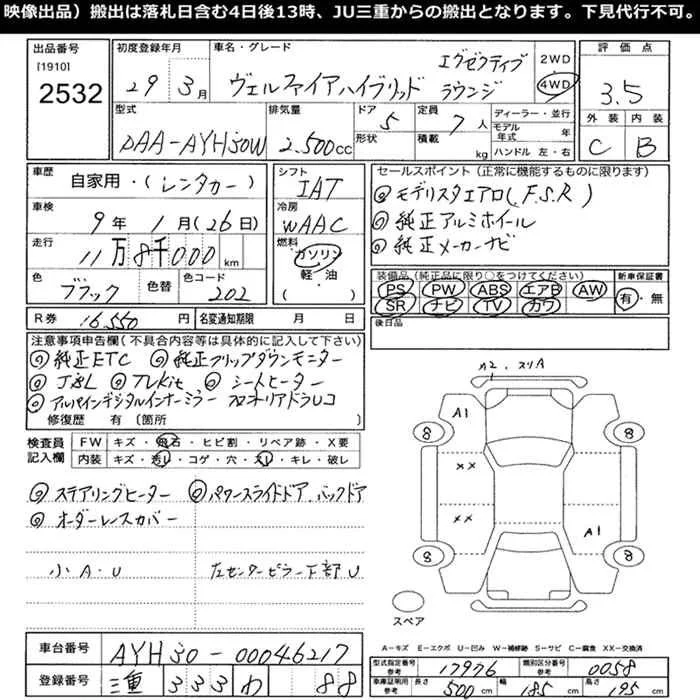 映像出品）搬出は落札日含む4日後13時、JU三重からの搬出となります。下見代行不可。
出品番号 初度登録年月 車名・グレード 評価点
[1910]
2532 29年 3月 ヴェルファイアハイブリッド エグゼクティブ ラウンジ 2WD・4WD 3.5
型式 排気量 ドア 定員 ディーラー・並行 外装 内装
DAA-AYH30W 2.500cc 5 7人 モデル年式 年 C B
形状 積載 kg ハンドル 左・右
車歴 自家用・(レンタカー) シフト IAT セールスポイント(正常に機能するものに限ります)
車検 9年 1月(26日) 冷房 WAAC ◎モデリスタエアロ(F.S.R)
◎純正アルミホイール
走行 11万8千000km 燃料 ガソリン・軽・油( ) ◎純正メーカーナビ
色 ブラック 色替 色コード 202 装備品(純正品に限り○をつけてください) 新車保証書
PS PW ABS エアB AW 有・無
SR ナビ TV カワ
R券 16,550円 名変通知期限 月 日 後日品
注意事項申告欄(不具合内容等は具体的に記入して下さい)
◎純正ETC ◎純正フリップダウンモニター
◎J&L ◎TVKit ◎シートヒーター
◎アルパインデジタルインナーミラー フロントリアドラレコ
修復歴 有(箇所 )
検査員記入欄 FW キズ・飛石・ヒビ割・リペア跡・X要
内装 キズ・汚レ・コゲ・穴・スレ・キレ・破レ
◎ステアリングヒーター ◎パワースライドドア.バックドア
◎オーダーレスカバー
小 A・U 左センターピラー下部U
カ2.スリA
A1
8 8
××
××
A1
8 8
スペア
A－キズ E－エクボ U－凹み W－補修跡 S－サビ C－腐食 XX－交換済
車台番号 AYH30-0046217
登録番号 三重 333 わ 88
型式指定番号 参考 17976 類別区分番号 参考 0058
車庫証明用 参考 長さ 500cm 幅 185cm 高さ 195cm